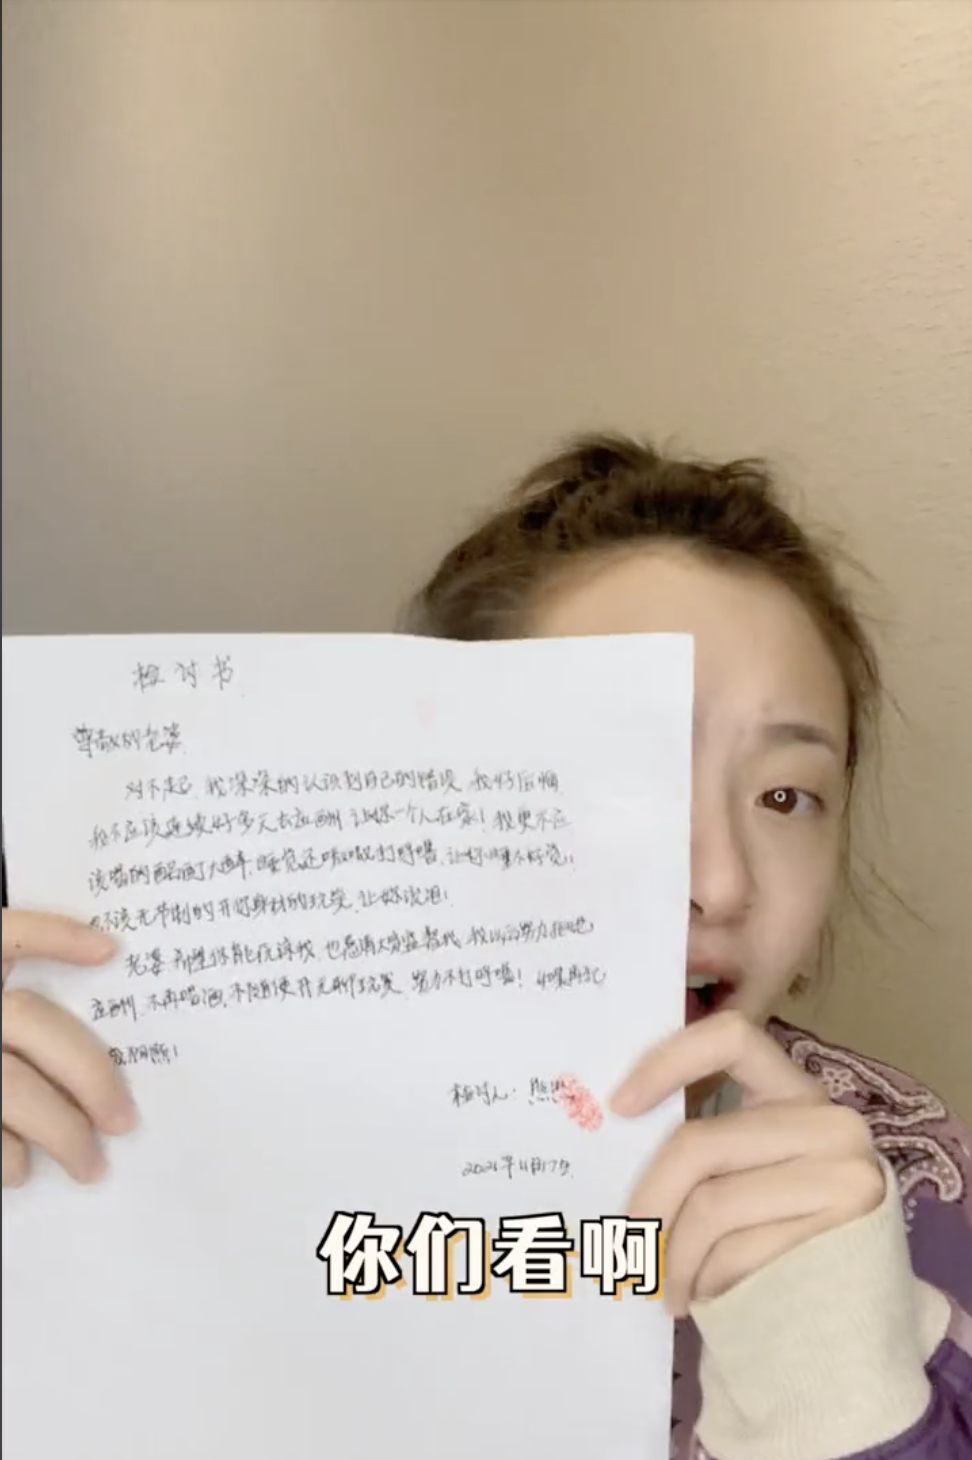 检讨书
尊敬的老婆
对不起,我深深的认识到自己的错误,我好后悔
我不应该连续好多天去应酬让你一个人在家!我更不应
该喝的酩酊大醉,睡觉还嗷嗷打呼噜,让你睡不好觉!
不该无节制的开你身材的玩笑,让你流泪!
老婆希望你能原谅我,也恳请大家监督我,我以后努力拒绝
应酬,不再喝酒,不随便开无聊玩笑,努力不打呼噜!如果再犯
我
检讨人:熊
2021年11月17日
你们看啊